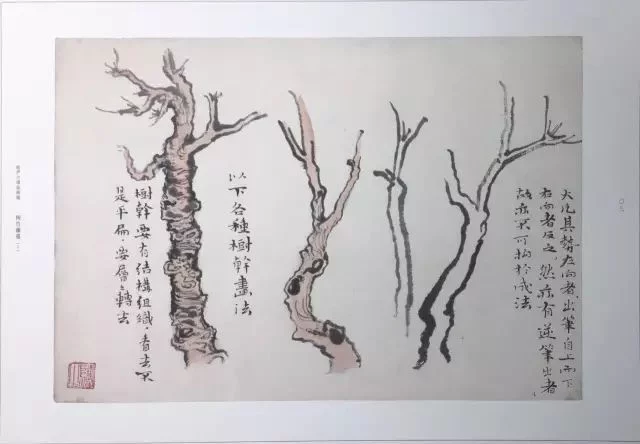 大凡其勢左向者,出筆自上而下
右向者反之,然亦有逆筆出者
故亦不可拘於成法
以下各種樹幹畫法
樹幹要有結構組織,看去不
是平扁,要層層轉法